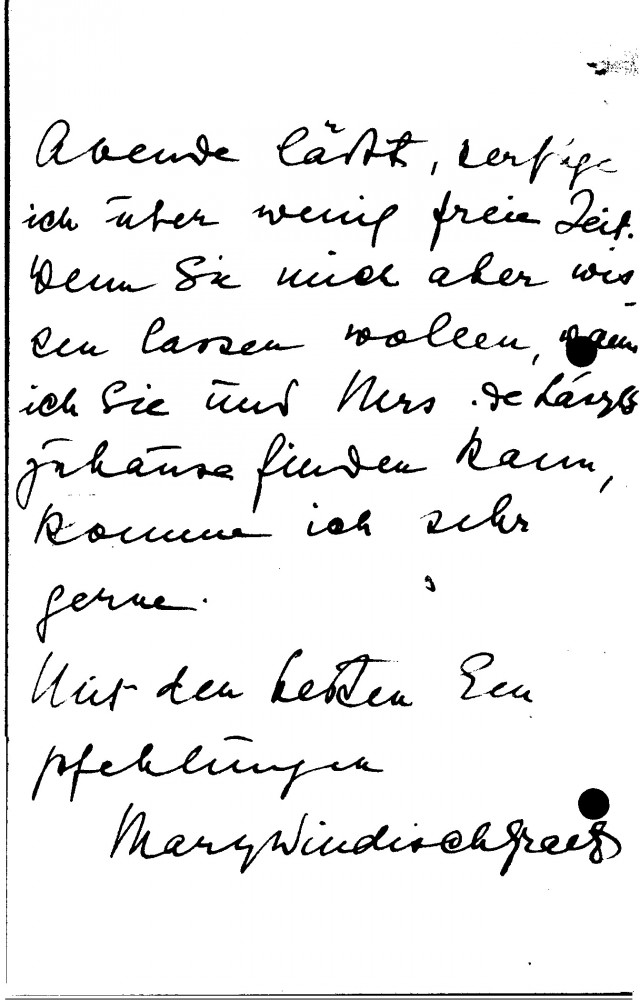 Abende läßt, verfüge
ich über wenig freie Zeit.
Wenn Sie mich aber wis
sen lassen wollen, wann
ich Sie und Mrs de László
zuhause finden kann,
komme ich sehr
gerne.
Mit den besten Em
pfehlungen
Mary Windischgraetz